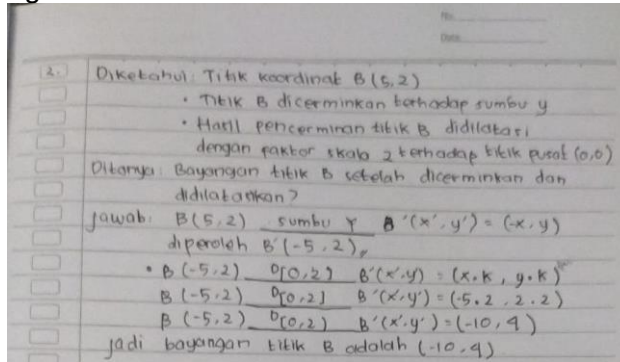 No.
Date
2. Diketahui: Titik koordinat B (5, 2)
• Titik B dicerminkan terhadap sumbu y
• Hasil pencerminan titik B didilatasi
dengan faktor skala 2 terhadap titik pusat (0,0)
Ditanya: Bayangan titik B setelah dicerminkan dan
didilatasikan?
Jawab: B(5,2) sumbu Y B'(x',y') = (-x, y)
diperoleh B'(-5,2),,
• B (-5,2) D[0,2] B'(x',y) = (x.k, y.k)
B (-5,2) D[0,2] B'(x',y') = (-5.2, 2.2)
B (-5,2) D[0,2] B'(x',y') = (-10, 4)
Jadi bayangan titik B adalah (-10, 4)